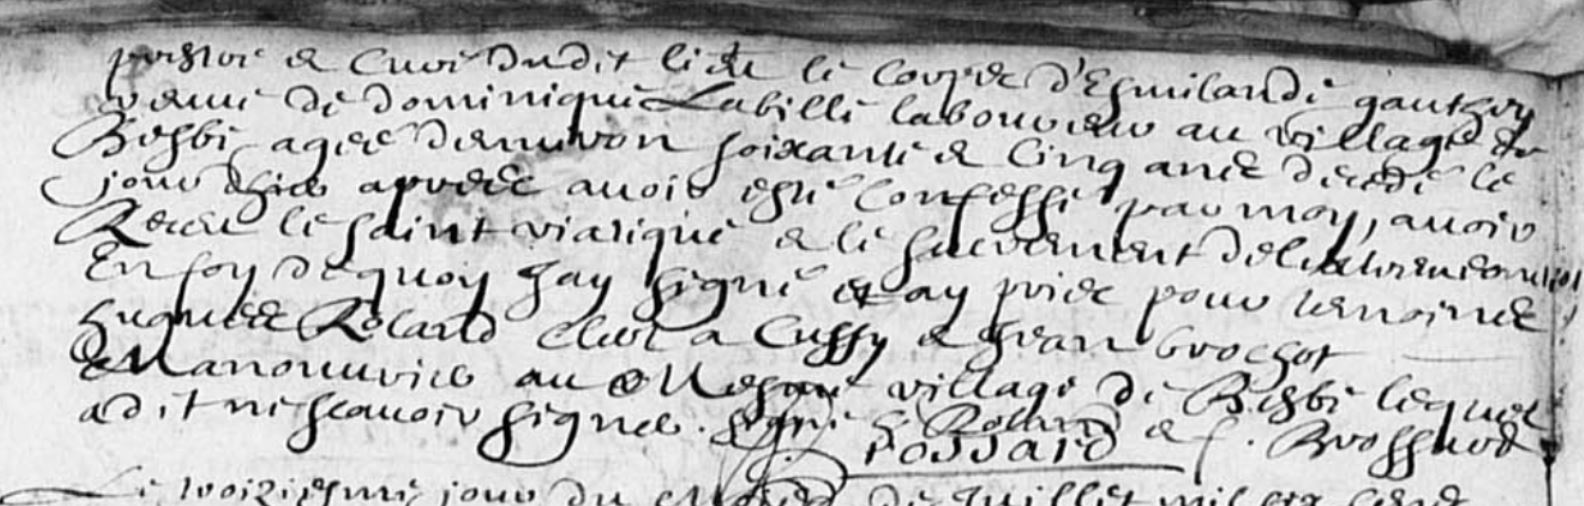 prestre et curé dudit lieu le corps d'Esmilande gauthey
vefve de dominique Labille laboureur au village de
Besbe agee denviron soixante et cinq ans decede le
jour dhier apres avoir esté confesse par moy, avoir
Receu le saint viatique et le sacrement de lextremeonction
En foy de quoy Jay signé et ay prier pour temoines
hugues Rolard clerc a Cussy et Jean brochot
Manouvrier au mesme village de Besbe lequel
a dit ne scavoir signer. signé h. Rolard et f. Brossard
rossard
Le troiziesme jour du mois de Juillet mil six cens